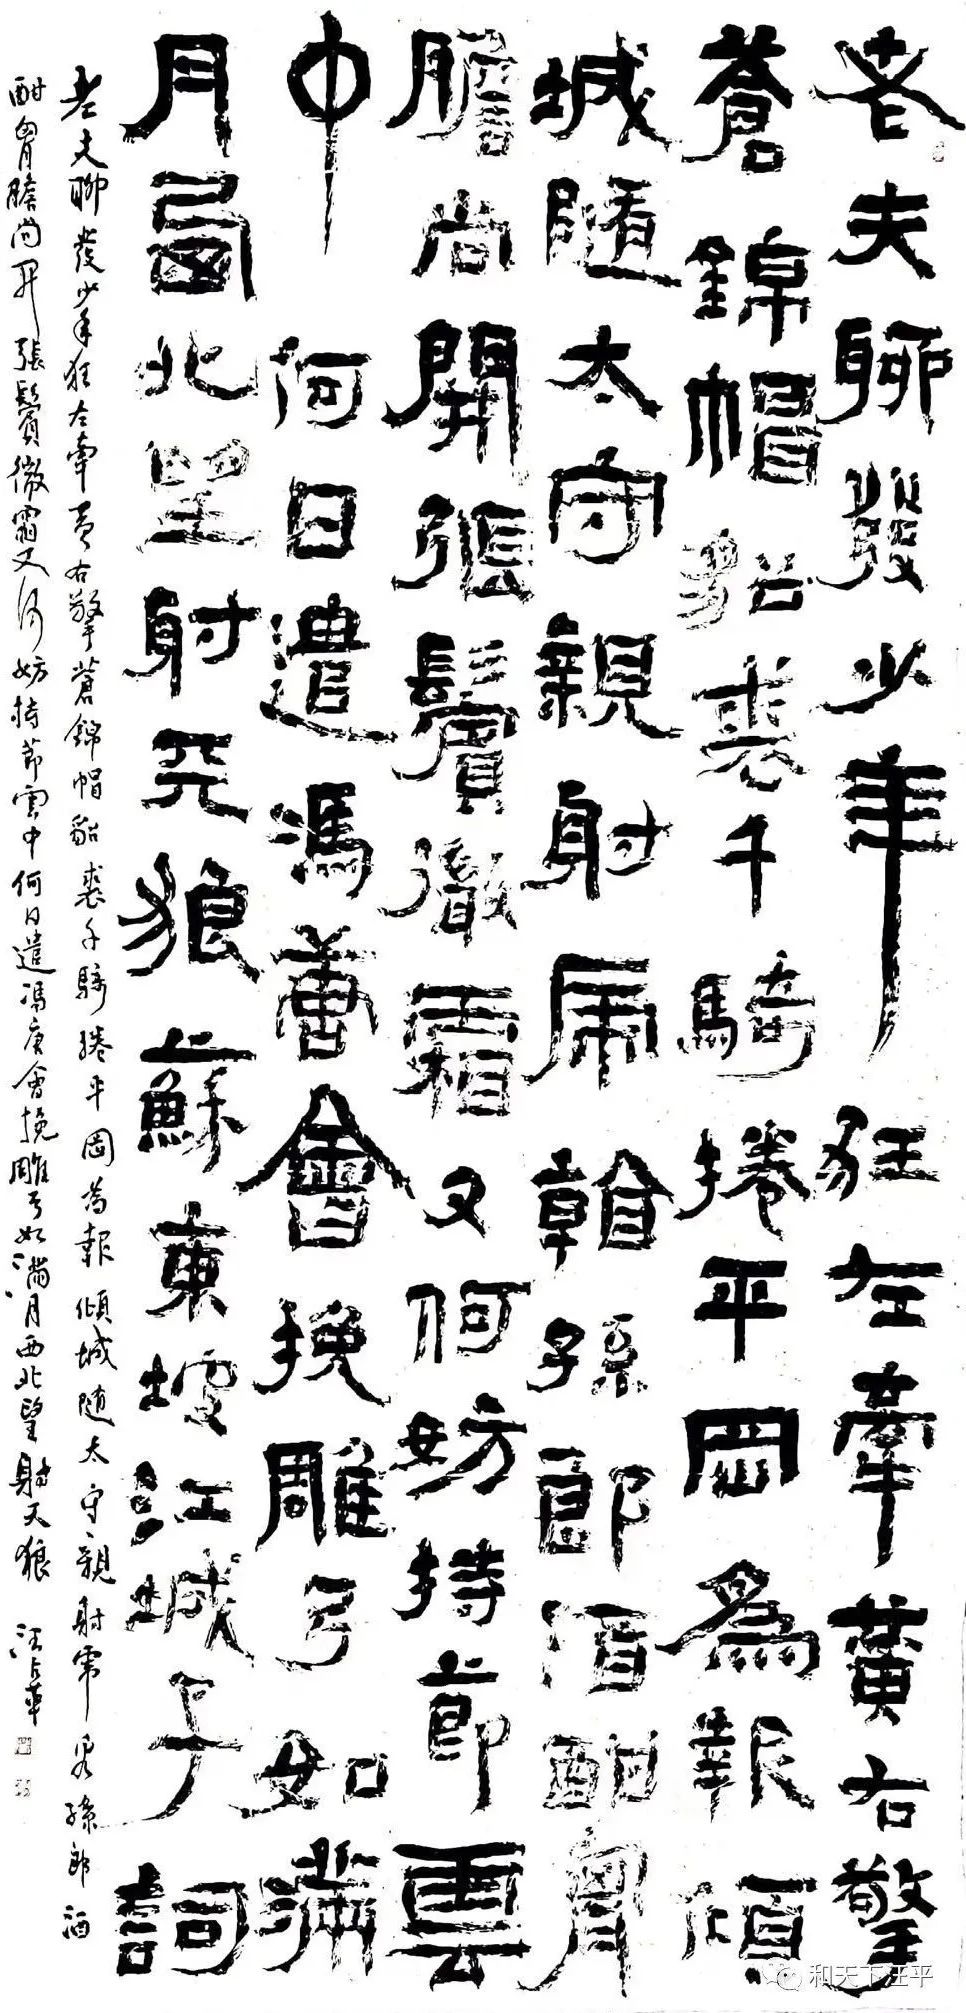 老夫聊發少年狂左牽黃右擎
蒼錦帽貂裘千騎捲平岡為報傾
城隨太守親射虎看孫郎酒酣胸
膽尚開張鬢微霜又何妨持節雲
中何日遣馮唐會挽雕弓如滿
月西北望射天狼蘇東坡江城子詞
老夫聊發少年狂左牽黃右擎蒼錦帽貂裘千騎捲平岡為報傾城隨太守親射虎看孫郎酒
酣胸膽尚開張鬢微霜又何妨持節雲中何日遣馮唐會挽雕弓如滿月西北望射天狼 汪
和天下汪平